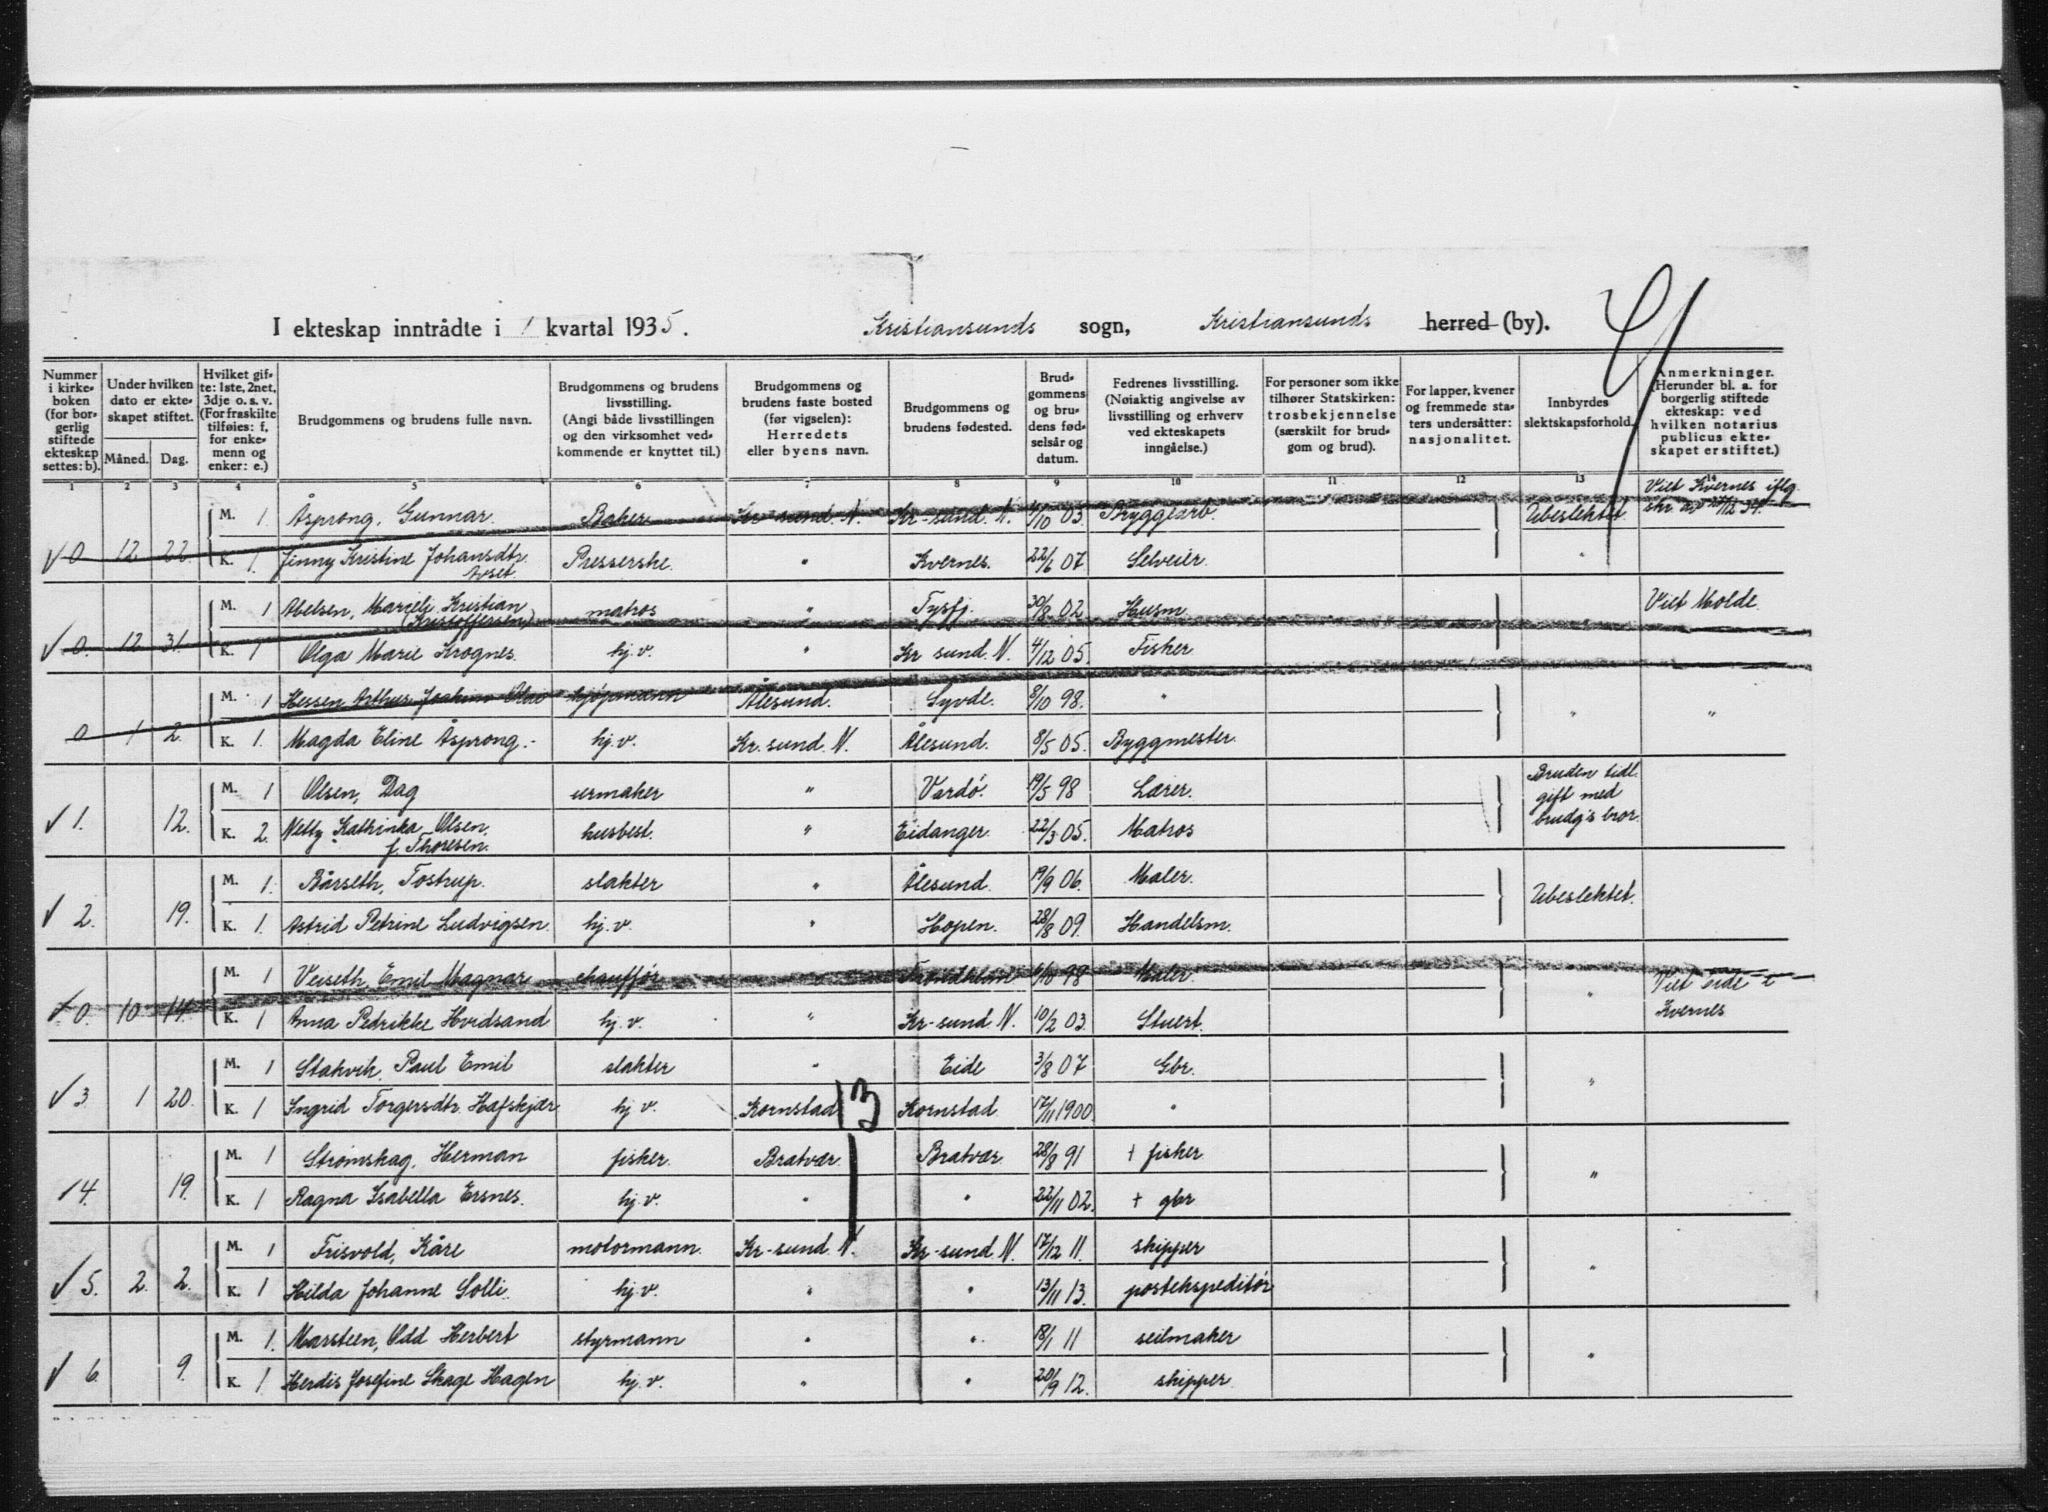 I ekteskap inntrådte i 1 kvartal 1935. Kristiansunds sogn, Kristiansunds herred (by).
Nummer i kirkeboken (for borgerlig stiftede ekteskap settes: b).
Under hvilken dato er ekteskapet stiftet. Måned. Dag.
Hvilket gifte: 1ste, 2net, 3dje o. s. v. (For fraskilte tilføies: f, for enkemenn og enker: e.)
Brudgommens og brudens fulle navn.
Brudgommens og brudens livsstilling. (Angi både livsstillingen og den virksomhet vedkommende er knyttet til.)
Brudgommens og brudens faste bosted (før vigselen): Herredets eller byens navn.
Brudgommens og brudens fødested.
Brudgommens og brudens fødselsår og datum.
Fedrenes livsstilling. (Nøiaktig angivelse av livsstilling og erhverv ved ekteskapets inngåelse.)
For personer som ikke tilhører Statskirken: trosbekjennelse (særskilt for brudgom og brud).
For lapper, kvener og fremmede staters undersåtter: nasjonalitet.
Innbyrdes slektskapsforhold.
Anmerkninger. (Herunder bl. a. for borgerlig stiftede ekteskap: ved hvilken notarius publicus ekteskapet er stiftet.)
1 2 3 4 5 6 7 8 9 10 11 12 13 14
M. 1. Åsprong, Gunnar. Baker Kr-sund. N. Kr-sund. N. 4/10 03. Bryggearb. Ubeslektet. Viet Kvernes iflg. skr. av
√ 0 12 22. K. 1. Jinny Kristine Johansdtr. Avset. Presserske. " Kvernes. 22/6 07. Selveier. "
M. 1 Abelsen, Marieli Kristian (Kristoffersen) matros " Tysfj. 30/8 02 Husm. " Viet Molde.
√ 0. 12 31. K. 1 Olga Marie Krognes. hj.v. " Kr sund. N. 4/12 05. Fisker
M. 1 Hessen Arthur Joakim Olav kjøpmann Ålesund. Syvde. 8/10 98. " " "
0 1 2. K. 1. Magda Eline Åsprong. hj.v. Kr. sund. N. Ålesund. 8/5 05. Byggmester.
M. 1 Olsen, Dag urmaker " Vardö. 19/5 98 Lærer. Bruden tidl. gift med brudg's bror.
√ 1. 12. K. 2. Netty Kathinka Olsen. f. Thoresen. husbest. " Eidanger. 22/3 05. Matros
M. 1. Bårseth, Tostrup. slakter " Ålesund. 19/9 06. Maler. Ubeslektet.
√ 2. 19. K. 1. Astrid Petrine Ludvigsen. hj.v. " Hopen. 28/8 09. Handelsm.
M. 1 Veiseth Emil Magnar chauffør " Trondheim 98 Maler. " Viet Eide i Kvernes
√ 0. 10 14. K. 1 Anna Pedrikke Hvidsand hj.v. " Kr-sund. N. 10/2 03. Stuert.
M. 1 Stakvik, Paul Emil slakter " Eide 3/8 07 Gbr. "
√ 3. 1 20. K. 1 Ingrid Torgersdtr. Hafskjær hj.v. Kornstad 13 Kornstad. 17/11 1900. "
M. 1 Strømskag, Herman fisker. Bratvær. Bratvær. 28/8 91 + fisker "
√ 4. 19. K. 1 Ragna Isabella Ersnes. hj.v. " " 22/11 02. + gbr.
M. 1 Frisvold, Kåre motormann. Kr-sund. N. Kr-sund. N. 17/12 11. skipper "
√ 5. 2. 2. K. 1 Hilda Johanne Solli. hj.v. " " 13/11 13. postekspeditör
M. 1. Marsteen, Odd Herbert styrmann " " 18/1 11 seilmaker "
√ 6. 9. K. 1 Herdis Josefine Skage Hagen hj.v. " " 20/9 12. skipper.